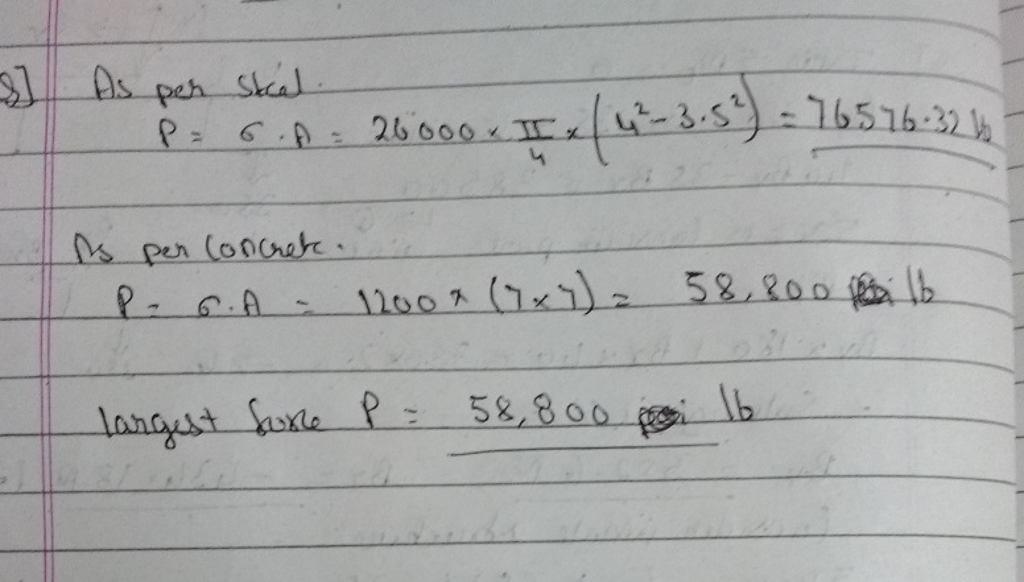 8] As per steel.
P = σ.A = 26000 × π/4 × (4² - 3.5²) = 76576.32 lb
As per concrete.
P = σ.A = 1200 × (7×7) = 58,800 lb
largest force P = 58,800 lb